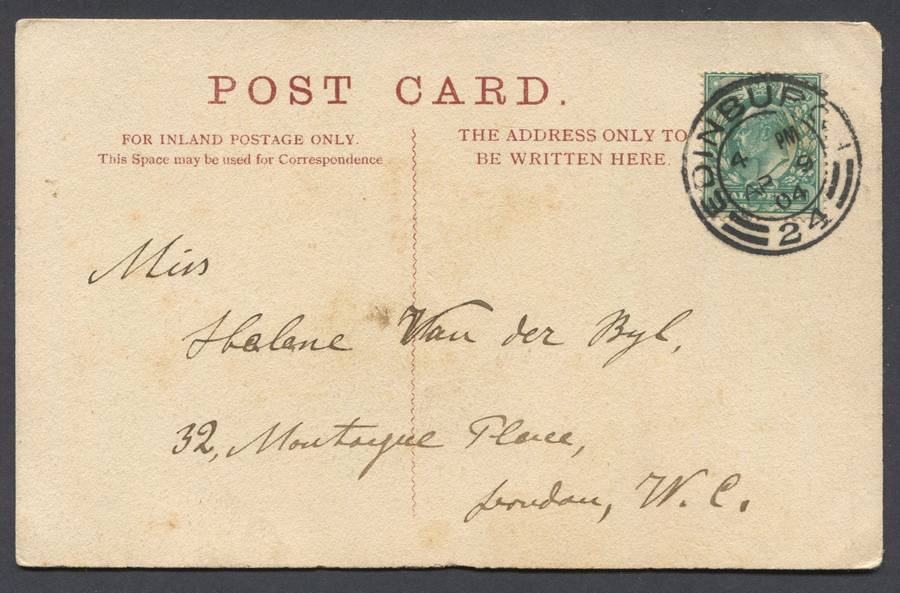 POST CARD.
FOR INLAND POSTAGE ONLY.
This Space may be used for Correspondence
THE ADDRESS ONLY TO
BE WRITTEN HERE.
EDINBURGH
4 PM
AP 9
04
24
Miss
Helene Van der Byl,
32, Montague Place,
London, W. C.